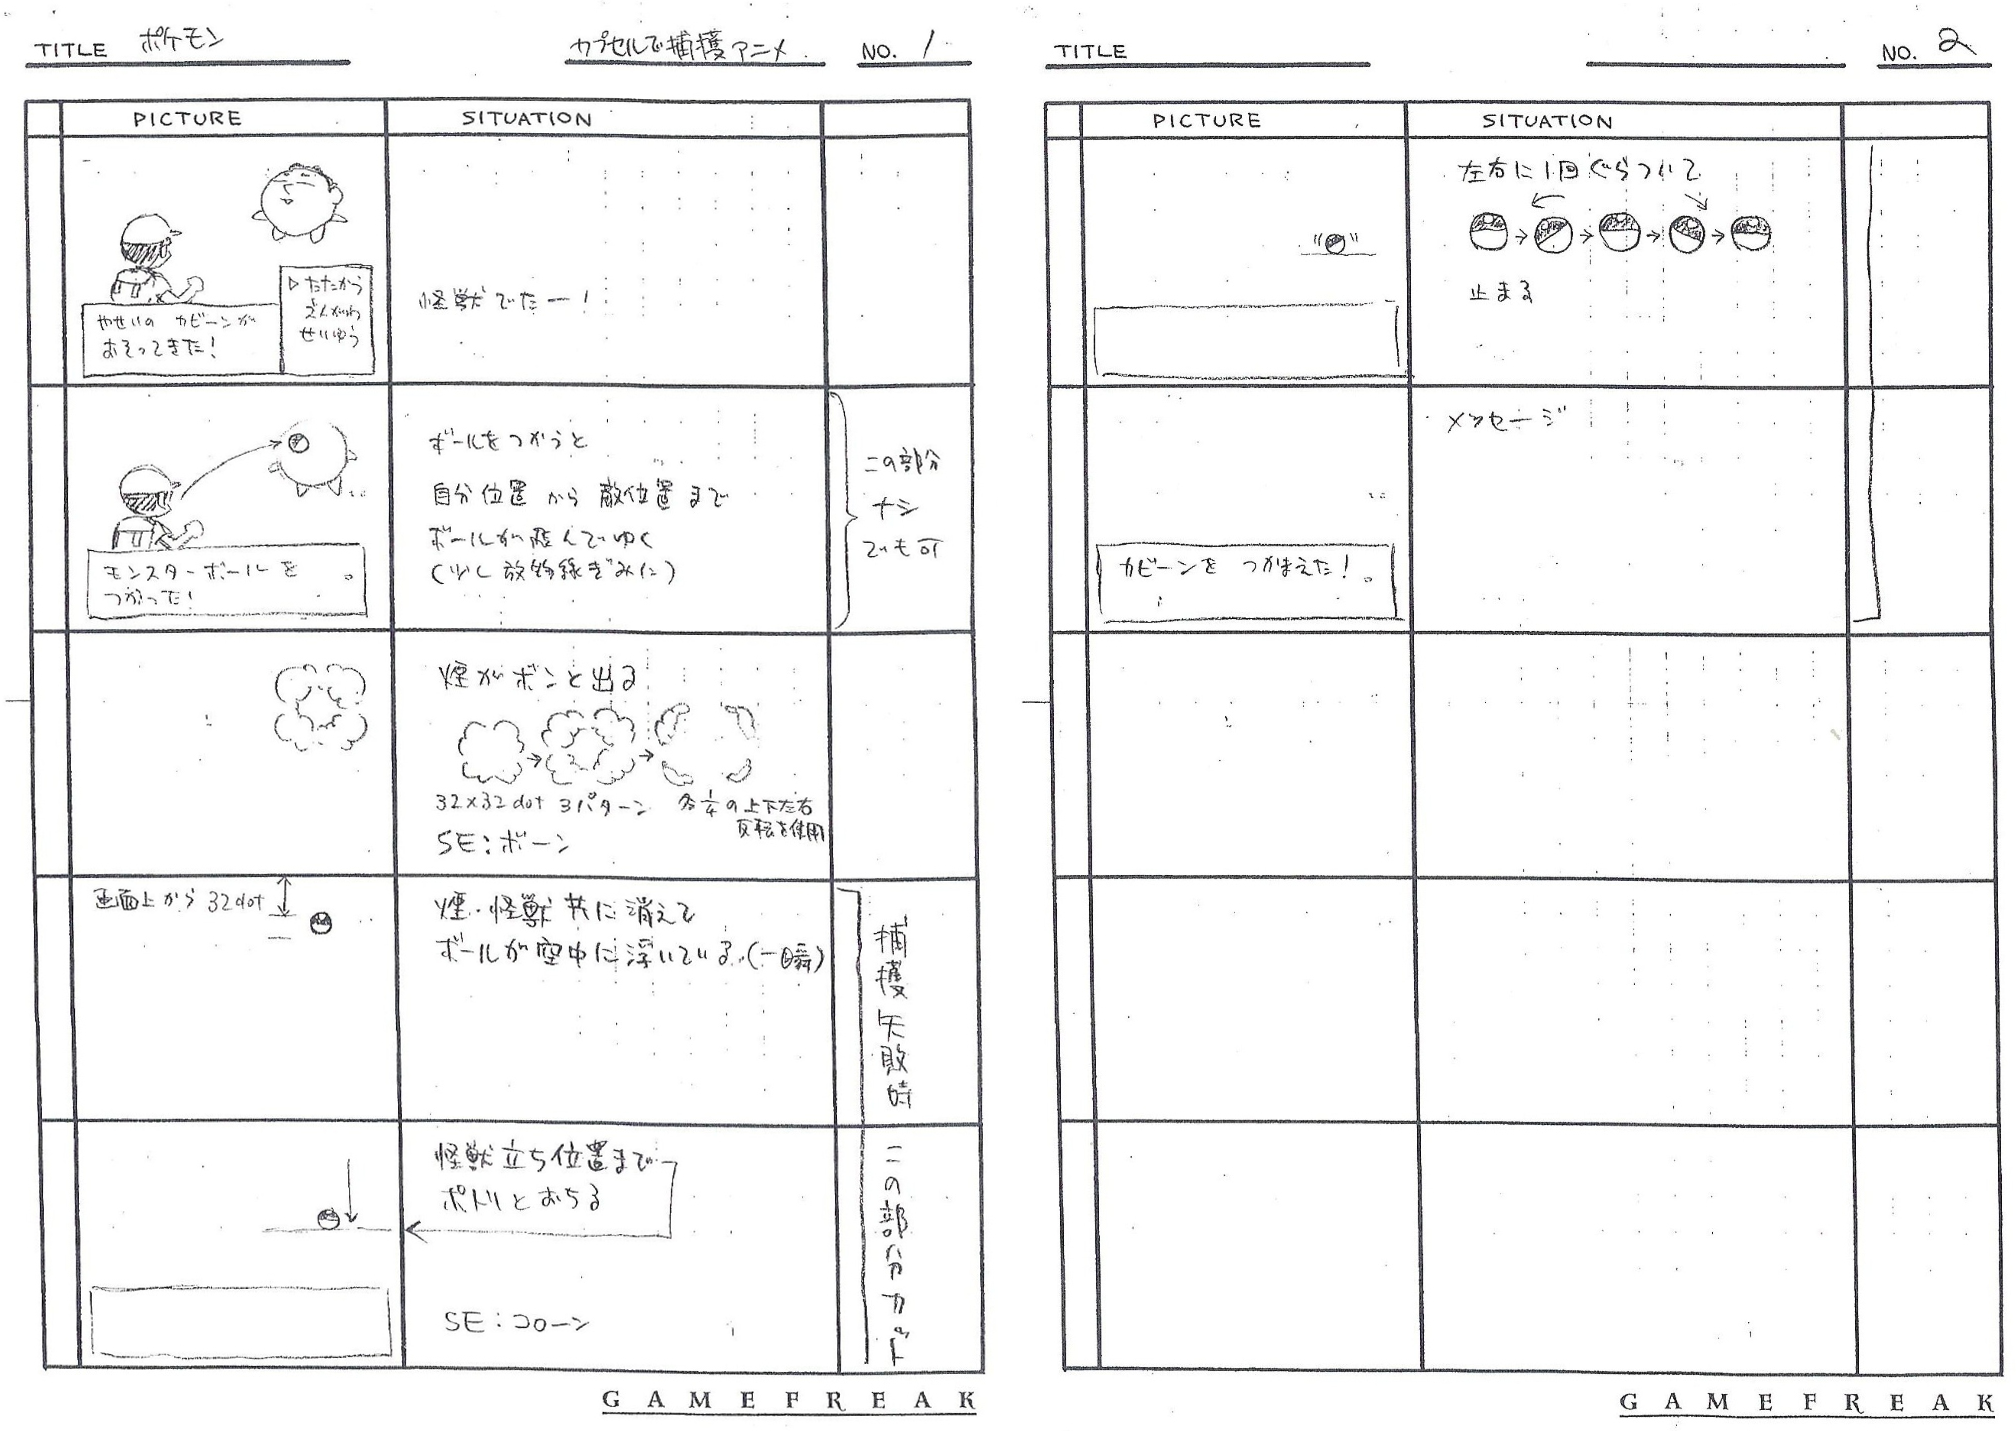 TITLE ポケモン
カプセルで捕獲アニメ
NO. 1
PICTURE
SITUATION
▷たたかう
どうぐ
せいゆう
やせいの カビーンが
おそってきた!
怪獣でたー!
モンスターボールを
つかった!
ボールをつかうと
自分位置から敵位置まで
ボールが飛んでゆく
(少し放物線ぎみに)
この部分
ナシ
でも可
煙がボンと出る
32×32dot 3パターン 各¼の上下左右
反転を使用
SE:ボーン
画面上から 32dot
煙・怪獣共に消えて
ボールが空中に浮いている.(一瞬)
捕獲失敗時
この部分カット
怪獣立ち位置まで
ポトリとおちる
SE:コローン
GAMEFREAK
TITLE
NO. 2
PICTURE
SITUATION
左右に1回ぐらついて
止まる
メッセージ
カビーンを つかまえた!
GAMEFREAK